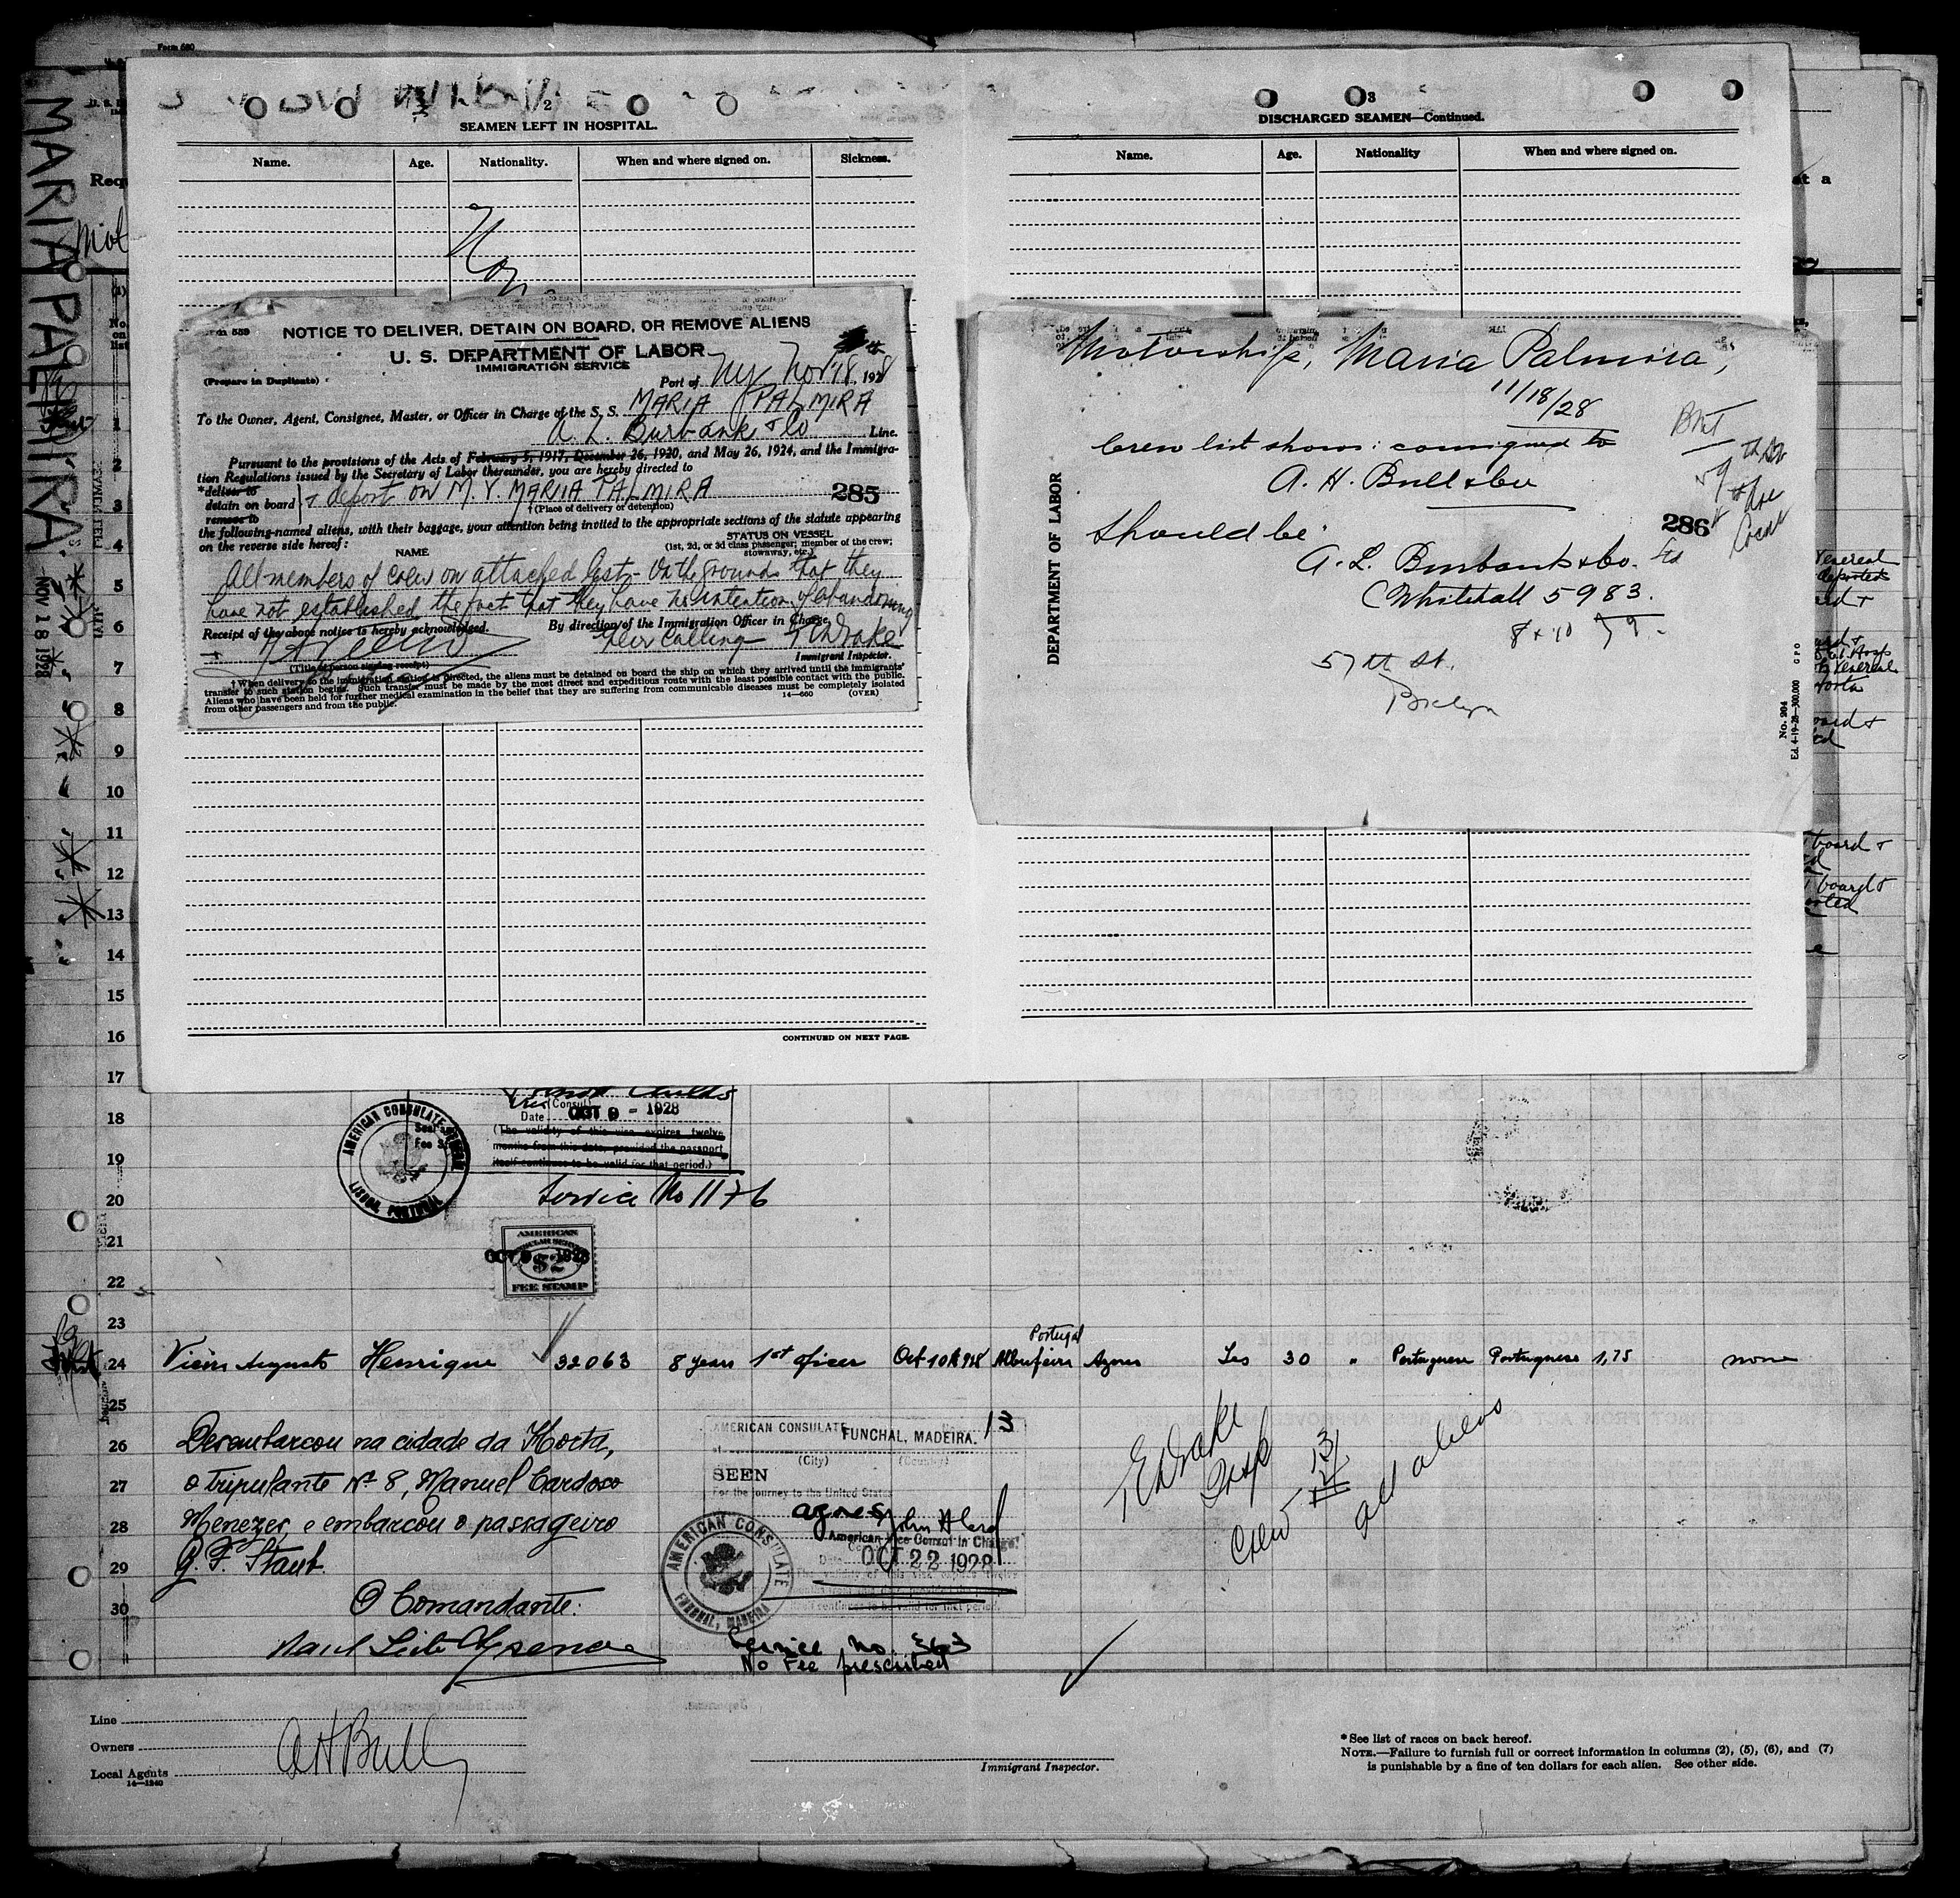 Form 680
MARIA PALMIRA.
NOV 18 1928
2
SEAMEN LEFT IN HOSPITAL.
Name. Age. Nationality. When and where signed on. Sickness.
3
DISCHARGED SEAMEN—Continued.
Name. Age. Nationality When and where signed on.
NOTICE TO DELIVER, DETAIN ON BOARD, OR REMOVE ALIENS
U. S. DEPARTMENT OF LABOR
IMMIGRATION SERVICE
(Prepare in Duplicate)
Port of NY Nov 18, 1928
To the Owner, Agent, Consignee, Master, or Officer in Charge of the S. S. MARIA PALMIRA
A. L. Burbank & Co Line.
Pursuant to the provisions of the Acts of February 5, 1917, December 26, 1920, and May 26, 1924, and the Immigra-
tion Regulations issued by the Secretary of Labor thereunder, you are hereby directed to
*deliver to
detain on board + deport on M. V. MARIA PALMIRA 285
remove to
†(Place of delivery or detention)
the following-named aliens, with their baggage, your attention being invited to the appropriate sections of the statute appearing
on the reverse side hereof:
STATUS ON VESSEL
(1st, 2d, or 3d class passenger; member of the crew;
stowaway, etc.)
NAME
All members of crew on attached list - On the ground that they
have not established the fact that they have no intention of abandoning
their calling
Receipt of the above notice is hereby acknowledged.
By direction of the Immigration Officer in Charge,
Drake
Immigrant Inspector.
(Title of person signing receipt)
†When delivery to the immigration station is directed, the aliens must be detained on board the ship on which they arrived until the immigrants'
transfer to such station begins. Such transfer must be made by the most direct and expeditious route with the least possible contact with the public.
Aliens who have been held for further medical examination in the belief that they are suffering from communicable diseases must be completely isolated
from other passengers and from the public.
14—660 (OVER)
Motorship, Maria Palmira,
11/18/28
Crew list shows: consigned to
A. H. Bull & Co
286
Should be:
A. L. Burbank & Co. Ltd
Whitehall 5983.
57th St.
Bklyn
DEPARTMENT OF LABOR
No. 204
Ed. 4-19-28—300,000 GPO
1
2
3
4
5
6
7
8
9
10
11
12
13
14
15
16
CONTINUED ON NEXT PAGE.
17
18
(Consul)
Date OCT 9 - 1928
(The validity of this visa expires twelve
months from this date, provided the passport
itself continues to be valid for that period.)
AMERICAN CONSULATE GENERAL
LISBON, PORTUGAL
19
Service No 1176
20
21
AMERICAN
CONSULAR SERVICE
$2
FEE STAMP
OCT 9 1928
22
23
Portugal
24 Vieira Augusto Henrique 32063 8 years 1st oficer Oct-10th 928 Albufeira Azores Yes 30 " Portuguese Portuguese 1,75 none
25
Desembarcou na cidade da Horta,
26
o tripulante Nº 8, Manuel Cardoso
27
Menezes, e embarcou o passageiro
28
G. F. Staub.
29
O Comandante:
30
AMERICAN CONSULATE
FUNCHAL, MADEIRA. 13
(City) (Country)
SEEN
For the journey to the United States
American Vice Consul in Charge.
Date OCT 22 1928
AMERICAN CONSULATE
FUNCHAL, MADEIRA
Service No. 363
No Fee prescribed
Drake
Insp
Crew 13
all aliens
Line
Owners A H Bull
Local Agents
14—1240
Immigrant Inspector.
*See list of races on back hereof.
NOTE.—Failure to furnish full or correct information in columns (2), (5), (6), and (7)
is punishable by a fine of ten dollars for each alien. See other side.